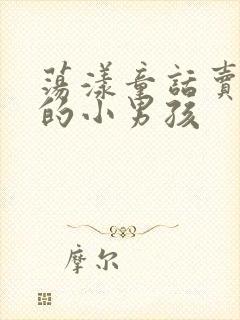 蕩漾童話賣
的小男孩
摩尔